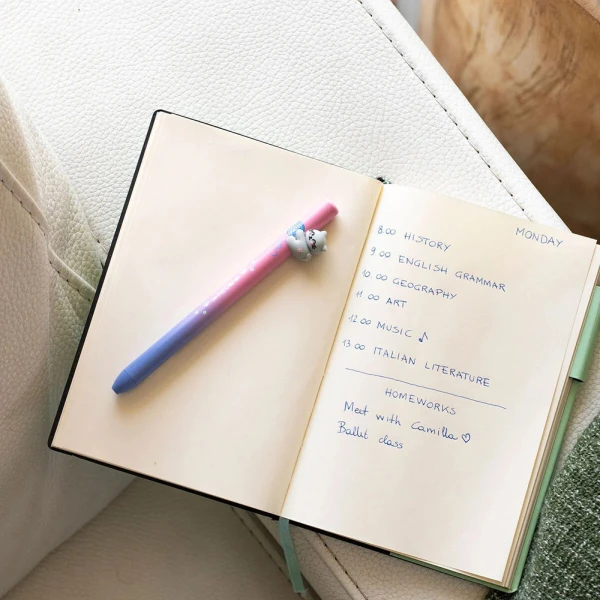 MONDAY
8.00 HISTORY
9.00 ENGLISH GRAMMAR
10.00 GEOGRAPHY
11.00 ART
12.00 MUSIC ♪
13.00 ITALIAN LITERATURE
HOMEWORKS
Meet with Camilla ♡
Ballet class